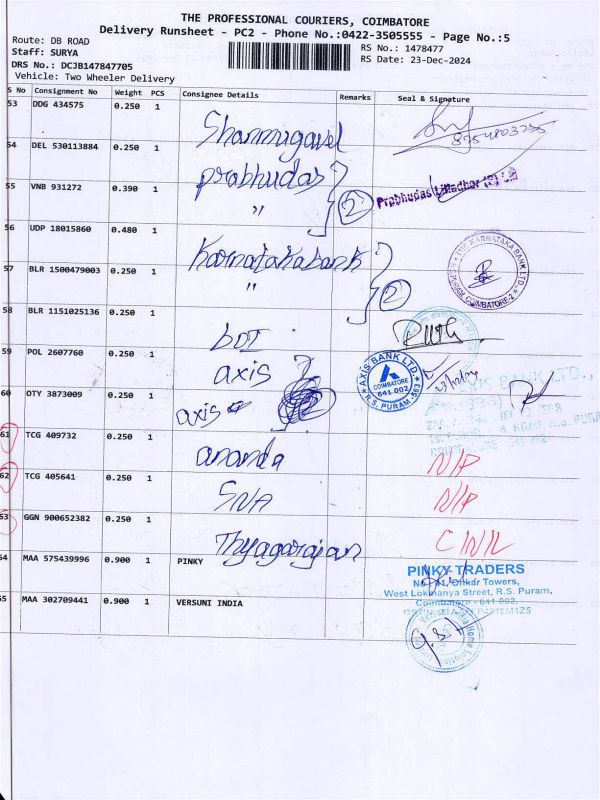 THE PROFESSIONAL COURIERS, COIMBATORE
Delivery Runsheet - PC2 - Phone No.:0422-3505555 - Page No.:5
Route: DB ROAD
RS No.: 1478477
Staff: SURYA
RS Date: 23-Dec-2024
DRS No.: DCJB147847705
Vehicle: Two Wheeler Delivery
S No Consignment No Weight PCS Consignee Details Remarks Seal & Signature
53 DDG 434575 0.250 1 Shanmugavel
54 DEL 530113884 0.250 1 prabhudas
55 VNB 931272 0.390 1 " 2 Prabhudas
56 UDP 18015860 0.480 1 Karnataka bank
57 BLR 1500479003 0.250 1 " 2 KARNATAKA BANK LTD. COIMBATORE-2
58 BLR 1151025136 0.250 1 BOI
59 POL 2607760 0.250 1 axis AXIS BANK LTD. COIMBATORE 641 002 R.S. PURAM
60 OTY 3873009 0.250 1 axis
61 TCG 409732 0.250 1 ananda N/P
62 TCG 405641 0.250 1 SNA N/P
63 GGN 900652382 0.250 1 Thyagarajan
64 MAA 575439996 0.900 1 PINKY
PINKY TRADERS
Onkar Towers,
West Lokmanya Street, R.S. Puram,
Coimbatore - 641 002.
65 MAA 302709441 0.900 1 VERSUNI INDIA